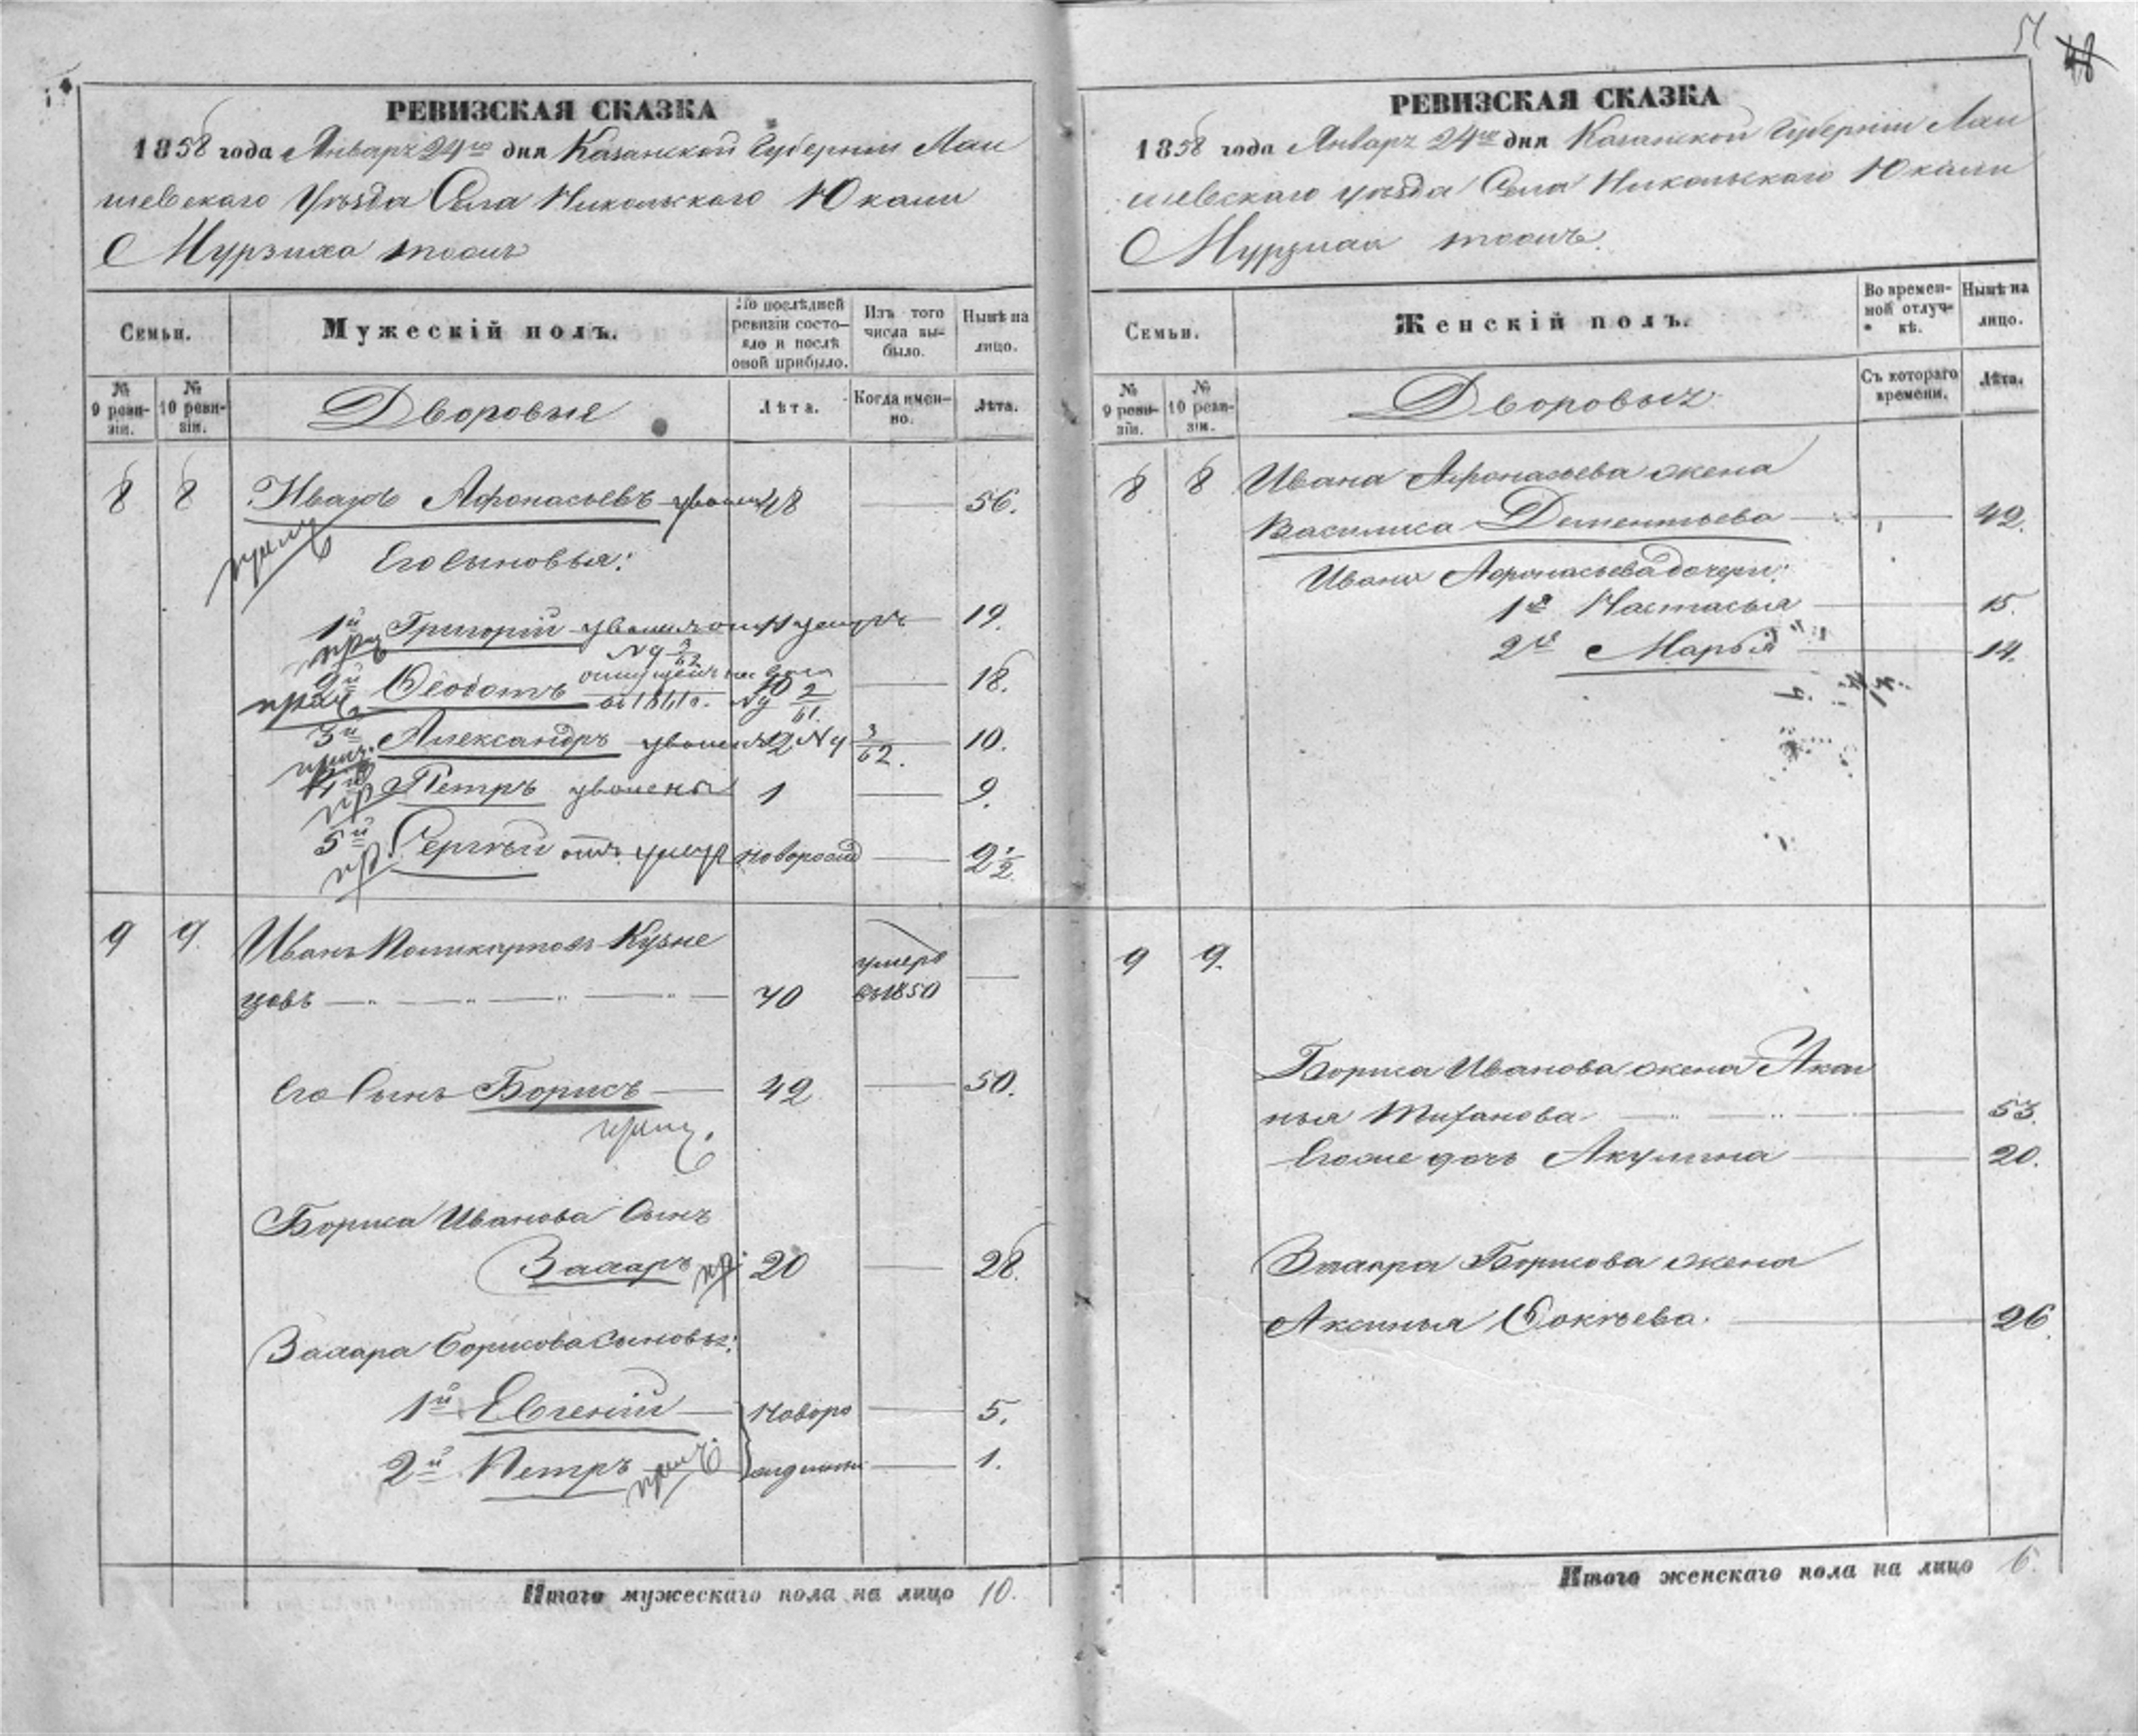 51
48
РЕВИЗСКАЯ СКАЗКА
1858 года Января 24го дня Казанской Губернии Лаи
шевскаго Уѣзда Села Никольскаго Юкали
Мурзиха тожъ
Семьи.
Мужескій полъ.
По послѣдней ревизіи состояло и послѣ оной прибыло.
Изъ того числа выбыло.
Нынѣ на лицо.
№ 9 ревизіи.
№ 10 ревизіи.
Дворовые
Лѣта.
Когда именно.
Лѣта.
8 8 Иванъ Афонасьевъ 48 — 56.
Его сыновья:
1й Григорій 11 — 19.
2й Ѳеодотъ отпущенъ на волю 10 — 18.
въ 1861 г. № 2/61.
3й Александръ 2 № 3/62. 10.
4й Петръ уволены 1 — 9.
5й Сергѣй новорожд — 2 1/2
9 9. Иванъ Поликарповъ Кузне
цовъ 70 умеръ въ 1850 —
Его Сынъ Борисъ 42 — 50.
Бориса Иванова Сынъ
Захаръ пр. 20 — 28.
Захара Борисова Сыновья:
1й Евгеній — Новоро — 5.
2й Петръ жденные — 1.
Итого мужескаго пола на лицо 10.
РЕВИЗСКАЯ СКАЗКА
1858 года Января 24го дня Казанской Губерніи Лаи
шевскаго уѣзда Села Никольскаго Юкали
Мурзиха тожъ.
Семьи.
Женскій полъ.
Во временной отлучкѣ.
Нынѣ на лицо.
№ 9 ревизіи.
№ 10 ревизіи.
Дворовыхъ
Съ котораго времени.
Лѣта.
8 8 Ивана Афонасьева жена
Василиса Дементьева — 42.
Ивана Афонасьева дочери:
1я Настасья — 15.
2я Марья — 14.
9 9.
Бориса Иванова жена Акси
нья — 53.
Его же дочь Акулина — 20.
Захара Борисова жена
Аксинья Фокѣева. — 26.
Итого женскаго пола на лицо 6.